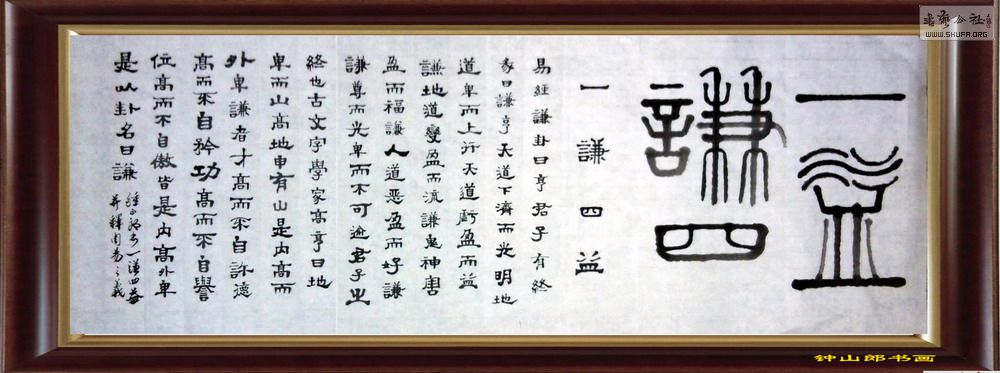 一益
謙四
一謙四益
易經謙卦曰亨君子有終
彖曰謙亨天道下濟而光明地
道卑而上行天道虧盈而益
謙地道變盈而流謙鬼神害
盈而福謙人道惡盈而好謙
謙尊而光卑而不可逾君子之
終也古文字學家高亨曰地
卑而山高地中有山是内高而
外卑謙者才高而不自許德
高而不自矜功高而不自譽
位高而不自傲皆是内高外卑
是以卦名曰謙
一謙四益
并釋周易之義
钟山郎书画
公社
WWW.SHUFA.ORG